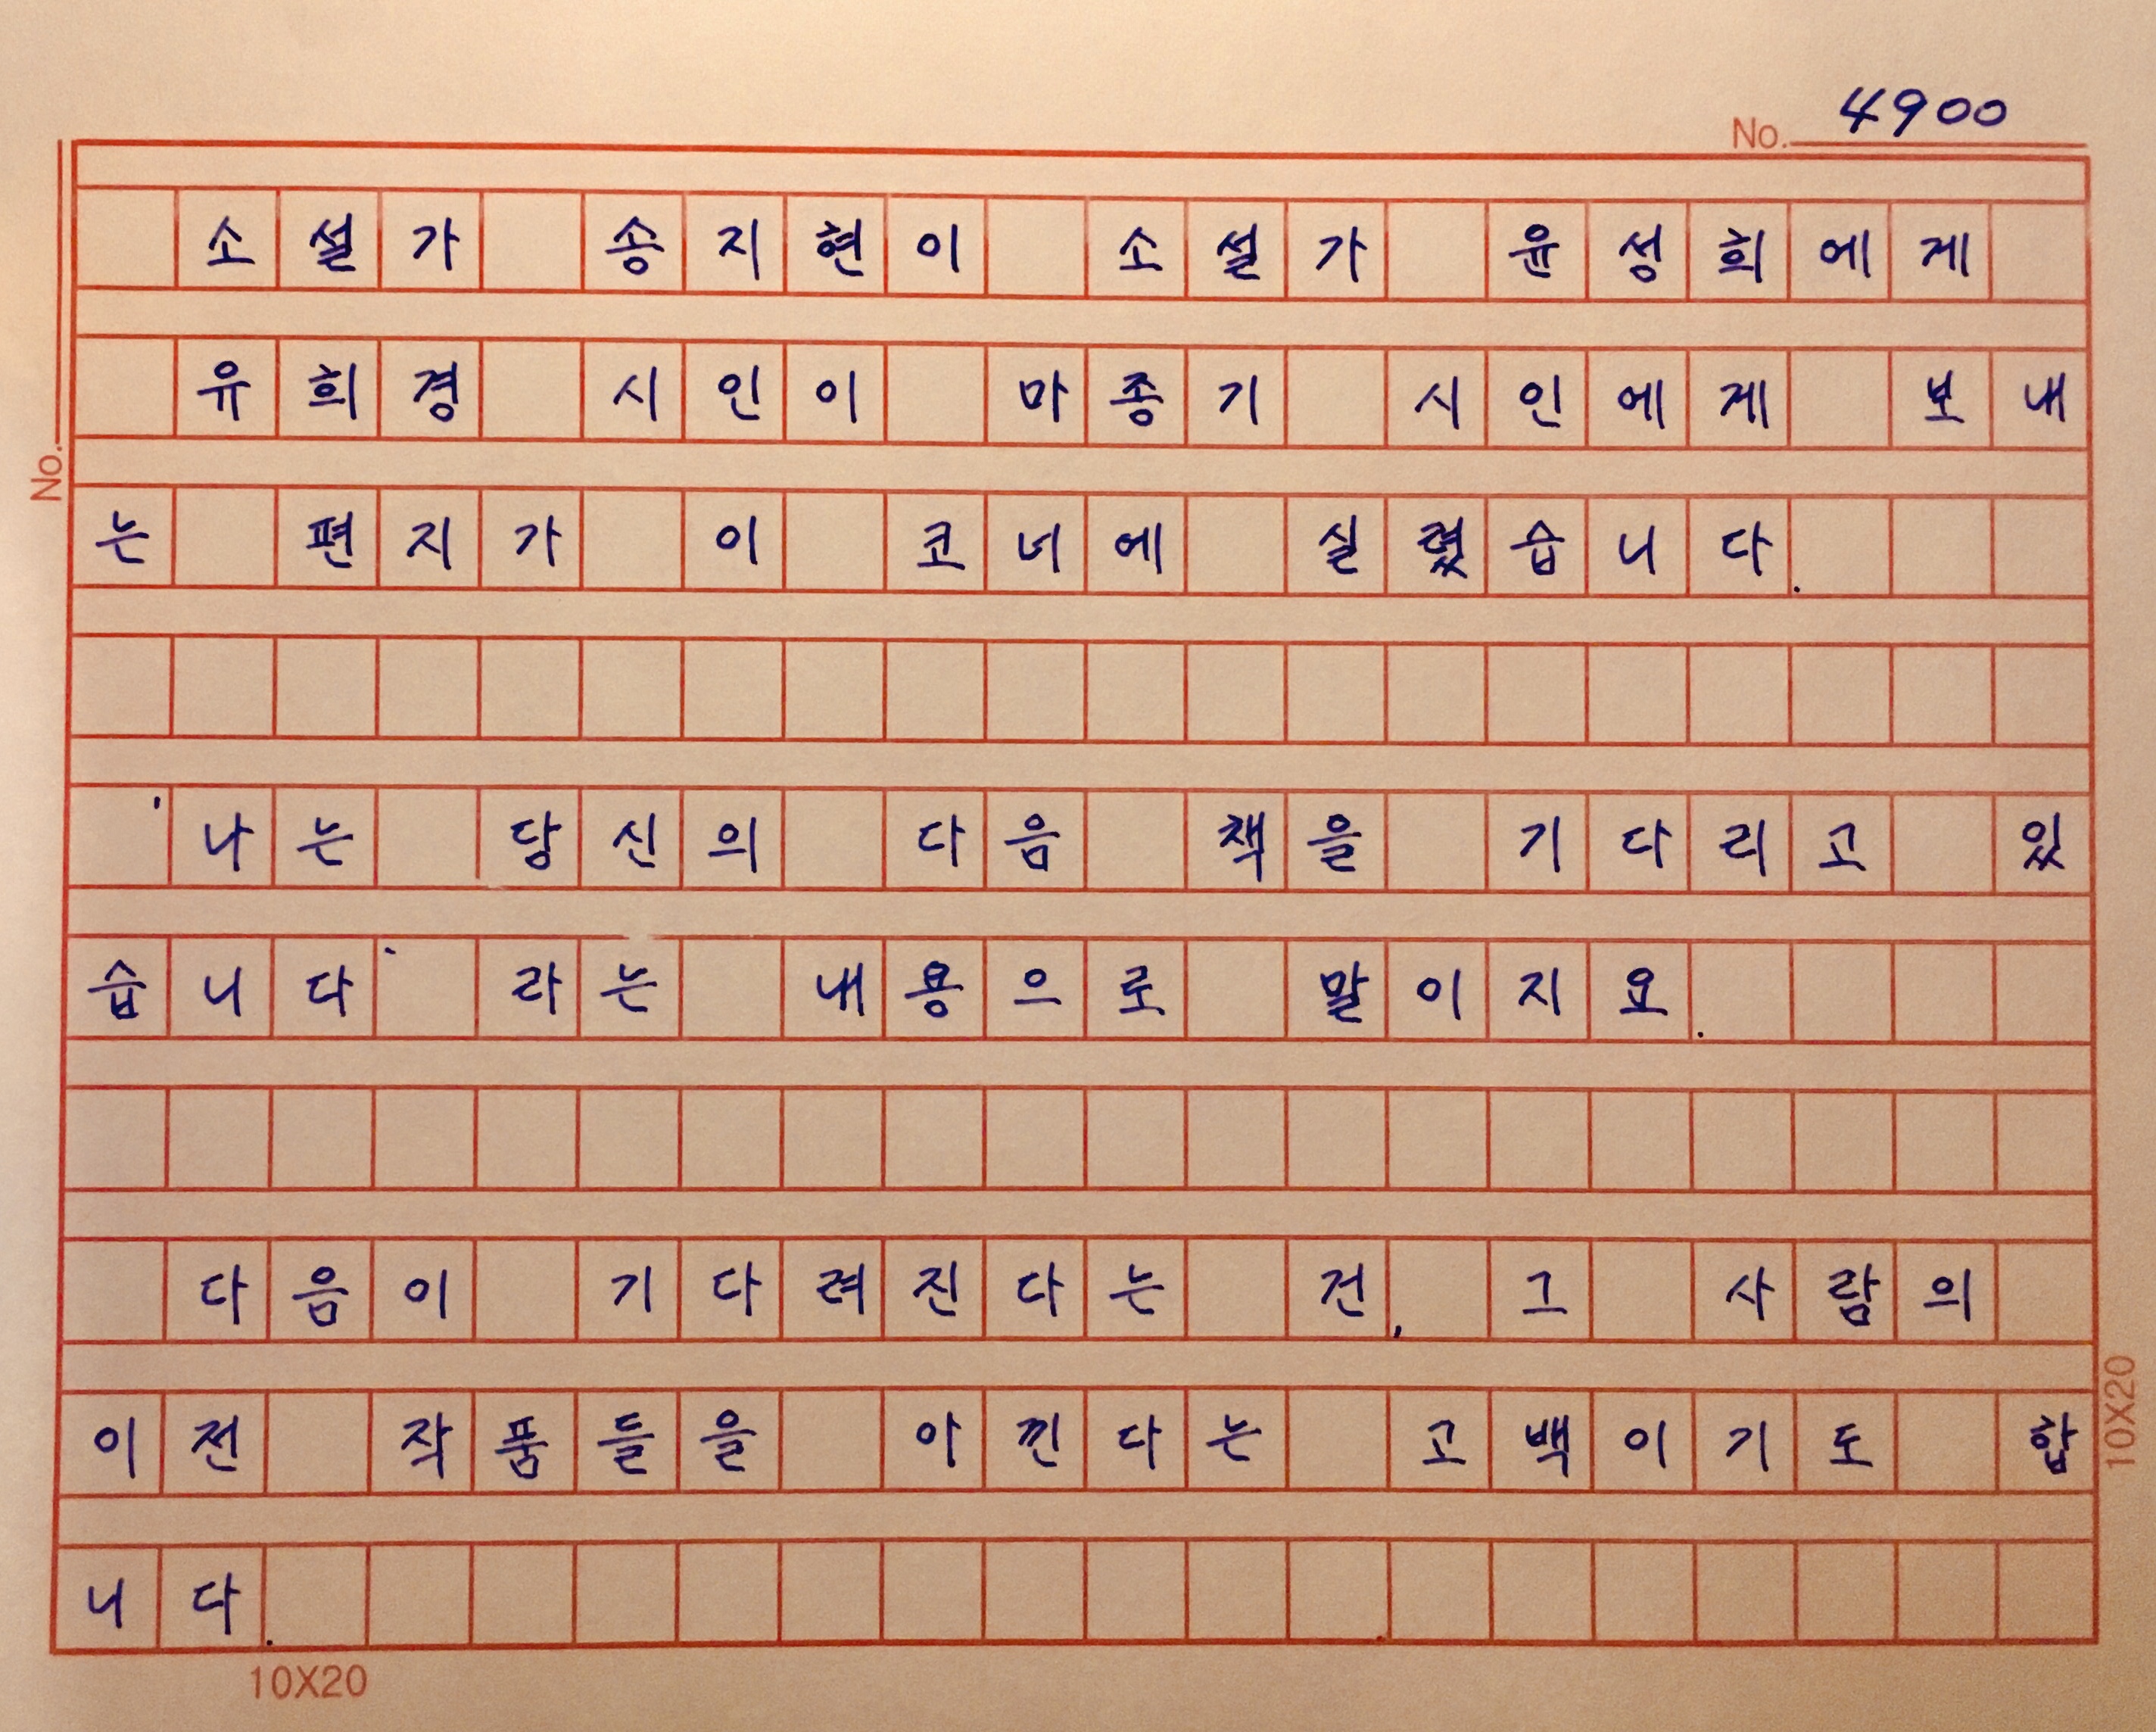 No. 4900
소설가 송지현이 소설가 윤성희에게
유희경 시인이 마종기 시인에게 보내
는 편지가 이 코너에 실렸습니다.
'나는 당신의 다음 책을 기다리고 있
습니다' 라는 내용으로 말이지요.
다음이 기다려진다는 건, 그 사람의
이전 작품들을 아낀다는 고백이기도 합
니다.
No.
10X20
10X20